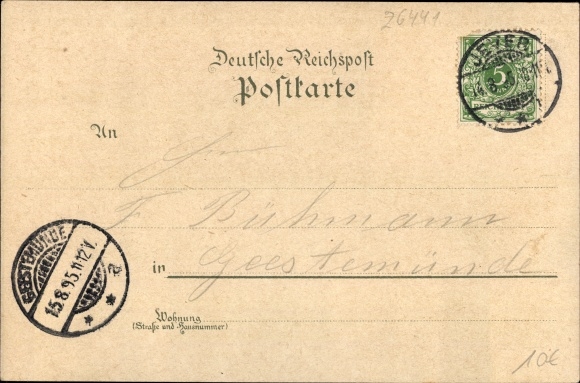 26441
Deutsche Reichspost
Postkarte
JEVER
5
An
Herrn
F Bühmann
in Geestemünde
GEESTEMÜNDE
15.8.95.11-12V.
Wohnung
(Straße und Hausnummer)
10€